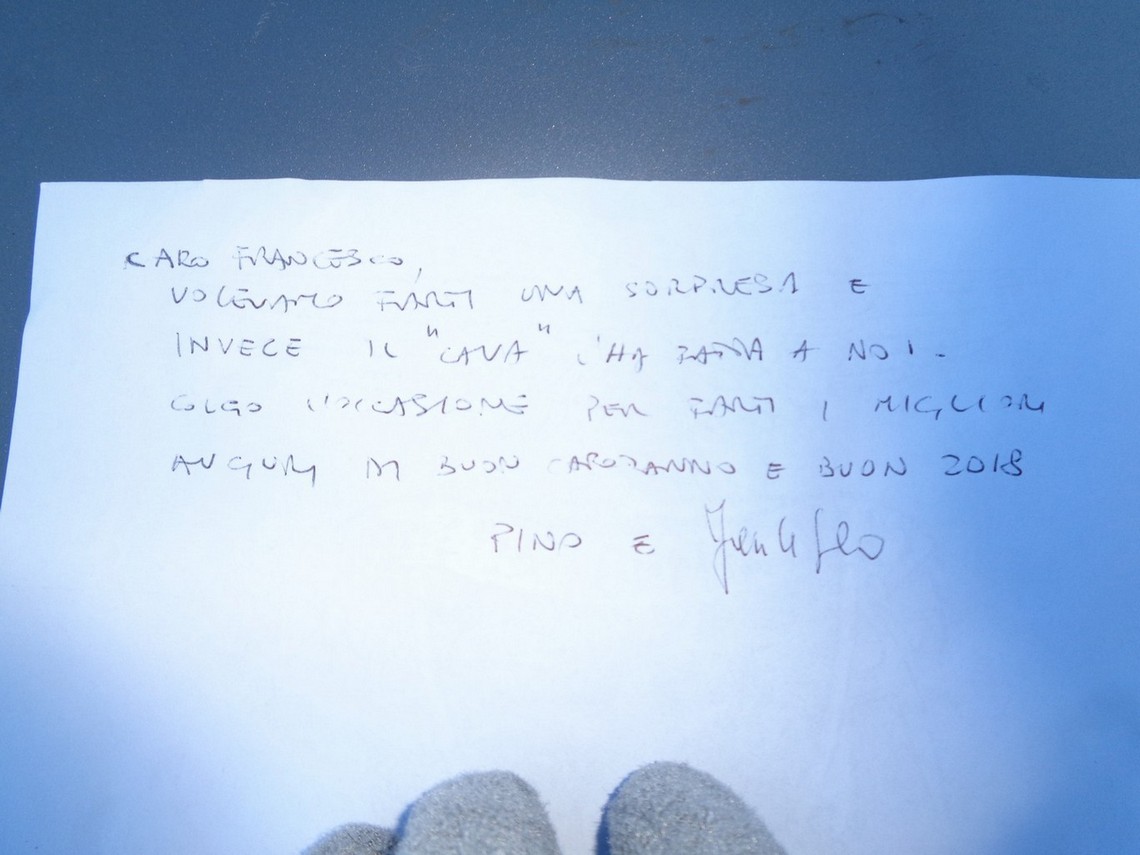 CARO FRANCESCO,
VOLEVAMO FARTI UNA SORPRESA E
INVECE IL "CAVA" L'HA FATTA A NOI.
COLGO L'OCCASIONE PER FARTI I MIGLIORI
AUGURI DI BUON CAPODANNO E BUON 2018
PINO E